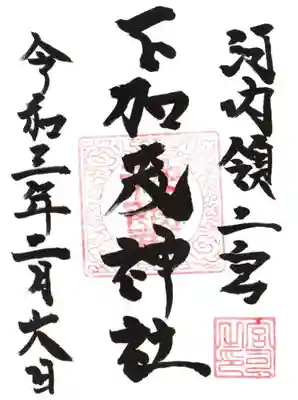 河内領二宮
下加茂神社
令和三年二月六日
宮司之印